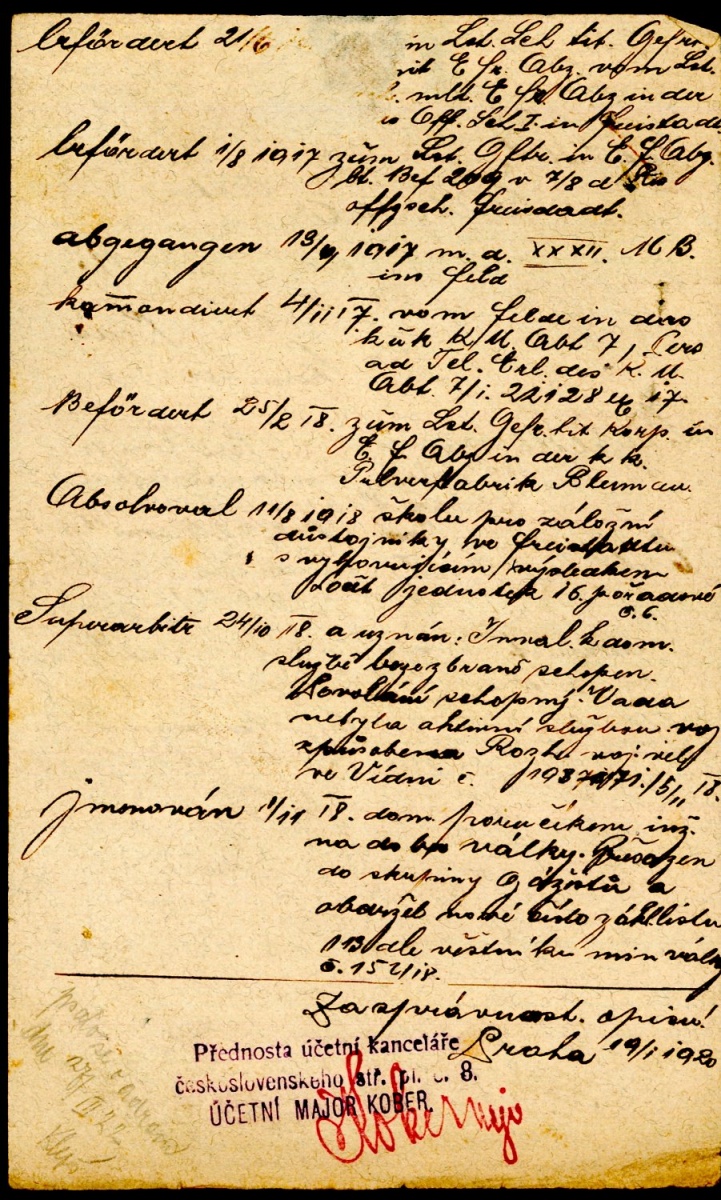 befördert 21/6 in Lst. Leh tit. Gefr.
mit E fr. Abz. vom Lst.
mit. E fr Abz in der
Off. Sch I. in Freistadt
befördert 1/8 1917 zum Lst. Gftr. in E. f. Abz.
bt. Bef 209 v 7/8 d Res
offzsch. Freisdadt.
abgegangen 13/9 1917 m. d. XXXII. M B.
ins feld
kom̄andiert 4/11 17. vom felde in das
k u k K M. Abt 7,
ad Tel. Erl. des K. M.
Abt. 7/1. 22128 ex 17.
Befördert 25/2 18. zum Lst. Gefr. tit Korp. in
E f Abz in der k k.
Pulverfabrik Blumau.
Absolvoval 11/8 1918 školu pro záložní
důstojníky ve Freistadtu
s vyhovujícím výsledkem
jednotek 16. pořadové
č. 6.
Superarbitr 24/10 18. a uznán: Inval. k dom.
službě beze zbraně schopen.
schopný. Vada
nebyla aktivní službou voj
způsobena Rozh. voj. vel
ve Vídni č. /5/11 18.
jmenován 1/11 18. dom. poručíkem inž.
na dobu války. Přeřazen
do skupiny gážistů a
obdržel nové číslo zákl listu
113 dle věstníku min války
č. 151/18.
Za správnost opisu!
Praha 19/1 1920
Přednosta účetní kanceláře
československého stř. pl. č. 8.
ÚČETNÍ MAJOR KOBER.
Kober mjr